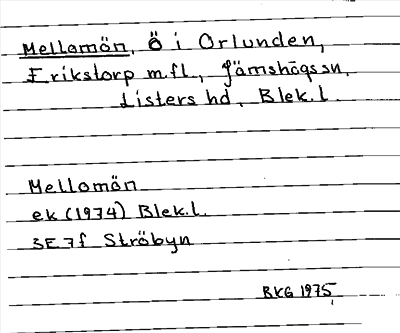 Mellomön, Ö i Orlunden,
Erikstorp m.fl., Jämshögs sn,
Listers hd, Blek. l.
Mellomön
ek (1974) Blek. l.
3E 7f Ströbyn
BKG 1975